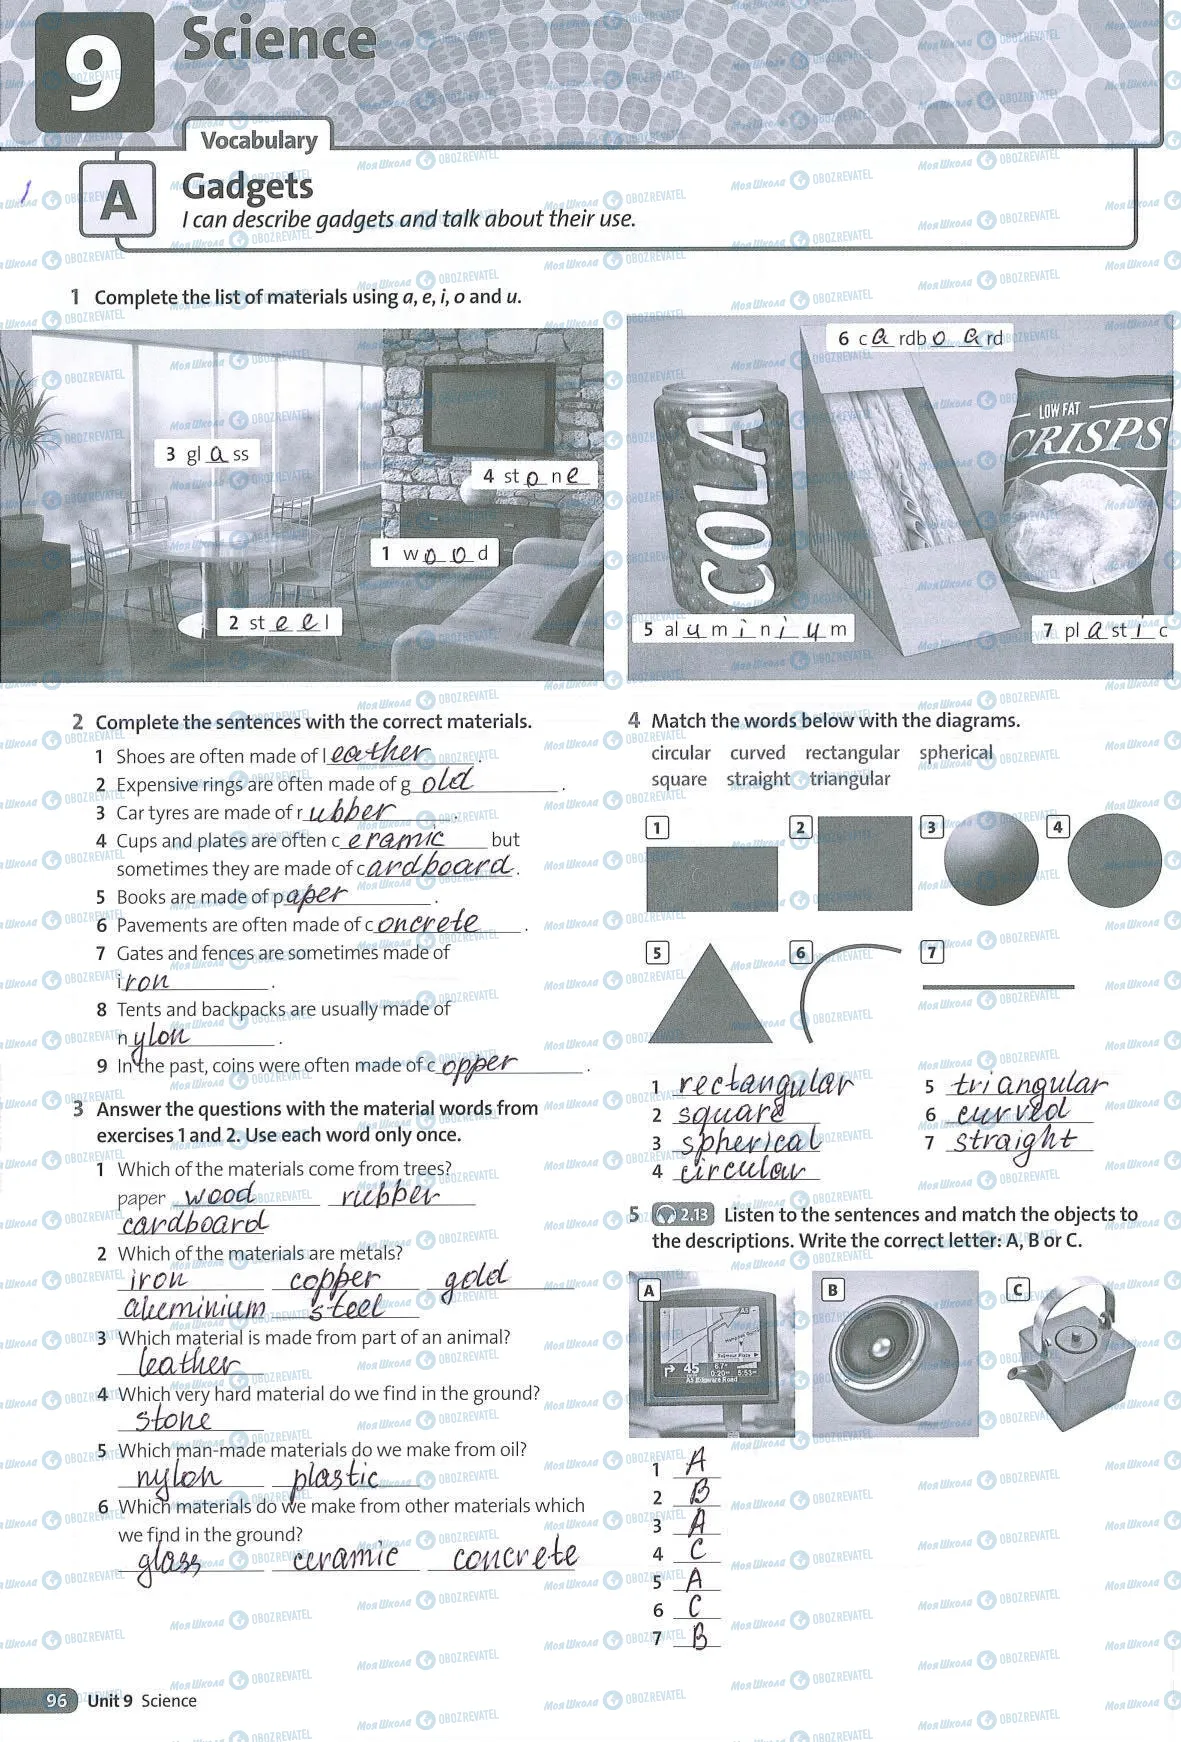 9 Science
Vocabulary
A Gadgets
I can describe gadgets and talk about their use.
1 Complete the list of materials using a, e, i, o and u.
3 gl a ss
4 st o n e
1 w o o d
2 st e e l
6 c a rdb o a rd
COLA
LOW FAT
CRISPS
5 al u m i n i u m
7 pl a st i c
2 Complete the sentences with the correct materials.
1 Shoes are often made of leather.
2 Expensive rings are often made of gold.
3 Car tyres are made of rubber.
4 Cups and plates are often ceramic but
sometimes they are made of cardboard.
5 Books are made of paper.
6 Pavements are often made of concrete.
7 Gates and fences are sometimes made of
iron.
8 Tents and backpacks are usually made of
nylon.
9 In the past, coins were often made of copper.
3 Answer the questions with the material words from
exercises 1 and 2. Use each word only once.
1 Which of the materials come from trees?
paper wood rubber
cardboard
2 Which of the materials are metals?
iron copper gold
aluminium steel
3 Which material is made from part of an animal?
leather
4 Which very hard material do we find in the ground?
stone
5 Which man-made materials do we make from oil?
nylon plastic
6 Which materials do we make from other materials which
we find in the ground?
glass ceramic concrete
4 Match the words below with the diagrams.
circular curved rectangular spherical
square straight triangular
1 2 3 4
5 6 7
1 rectangular 5 triangular
2 square 6 curved
3 spherical 7 straight
4 circular
5 2.13 Listen to the sentences and match the objects to
the descriptions. Write the correct letter: A, B or C.
A B C
45
1 A
2 B
3 A
4 C
5 A
6 C
7 B
96 Unit 9 Science
Моя Школа OBOZREVATEL